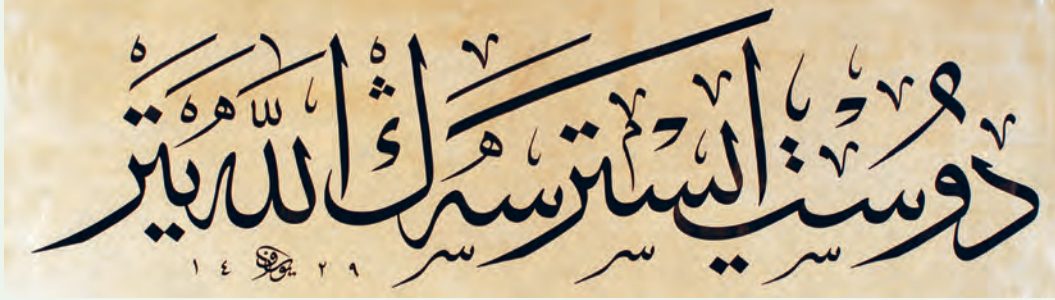 دوست ايسترسهڭ الله يتر
١٤٢٩